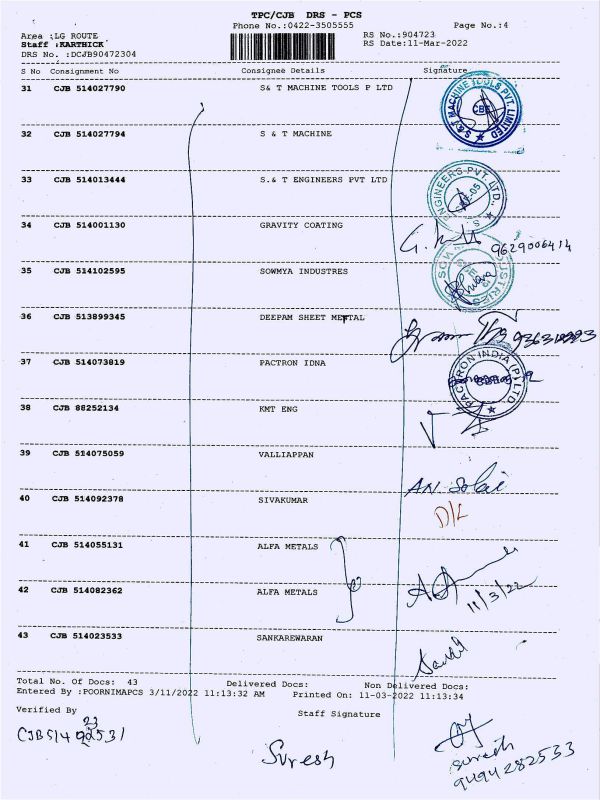 TPC/CJB DRS - PCS
Phone No.:0422-3505555 Page No.:4
Area :LG ROUTE RS No.:904723
Staff :KARTHICK RS Date:11-Mar-2022
DRS No. :DCJB90472304
S No Consignment No Consignee Details Signature
31 CJB 514027790 S& T MACHINE TOOLS P LTD
S.&.T MACHINE TOOLS PVT. LIMITED
CBE
32 CJB 514027794 S & T MACHINE
33 CJB 514013444 S.& T ENGINEERS PVT LTD
ENGINEERS PVT. LTD.
34 CJB 514001130 GRAVITY COATING
9629006414
35 CJB 514102595 SOWMYA INDUSTRES
36 CJB 513899345 DEEPAM SHEET METTAL
37 CJB 514073819 PACTRON IDNA
PACTRON INDIA (P) LTD.
38 CJB 88252134 KMT ENG
39 CJB 514075059 VALLIAPPAN
40 CJB 514092378 SIVAKUMAR
D/L
41 CJB 514055131 ALFA METALS
42 CJB 514082362 ALFA METALS
11/3/22
43 CJB 514023533 SANKAREWARAN
Total No. Of Docs: 43 Delivered Docs: Non Delivered Docs:
Entered By :POORNIMAPCS 3/11/2022 11:13:32 AM Printed On: 11-03-2022 11:13:34
Verified By Staff Signature
Suresh
suresh
9494282533